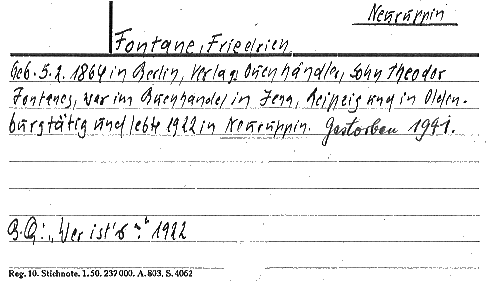 Neuruppin
Fontane, Friedrich
Geb. 5.2. 1864 in Berlin, Verlagsbuchhändler, Sohn Theodor
Fontanes, war im Buchhandel in Jena, Leipzig und in Olden-
burg tätig und lebte 1922 in Neuruppin. Gestorben 1941.
B.Q.: „Wer ist's?" 1922
Reg. 10. Stichnote. 1. 50. 237000. A. 803. S. 4062